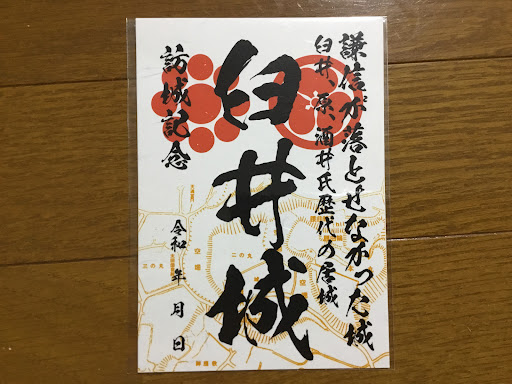 謙信が落とせなかった城
臼井、原、酒井氏歴代の居城
臼井城
訪城記念
令和 年 月 日
空堀
二の丸
三の丸